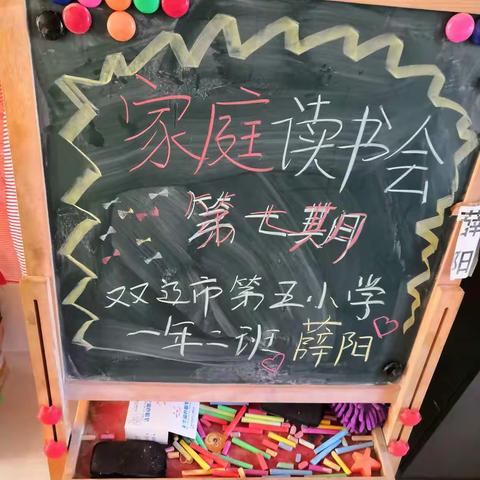 家庭读书会
第七期
双辽市第五小学
一年二班 薛阳
薛
阳